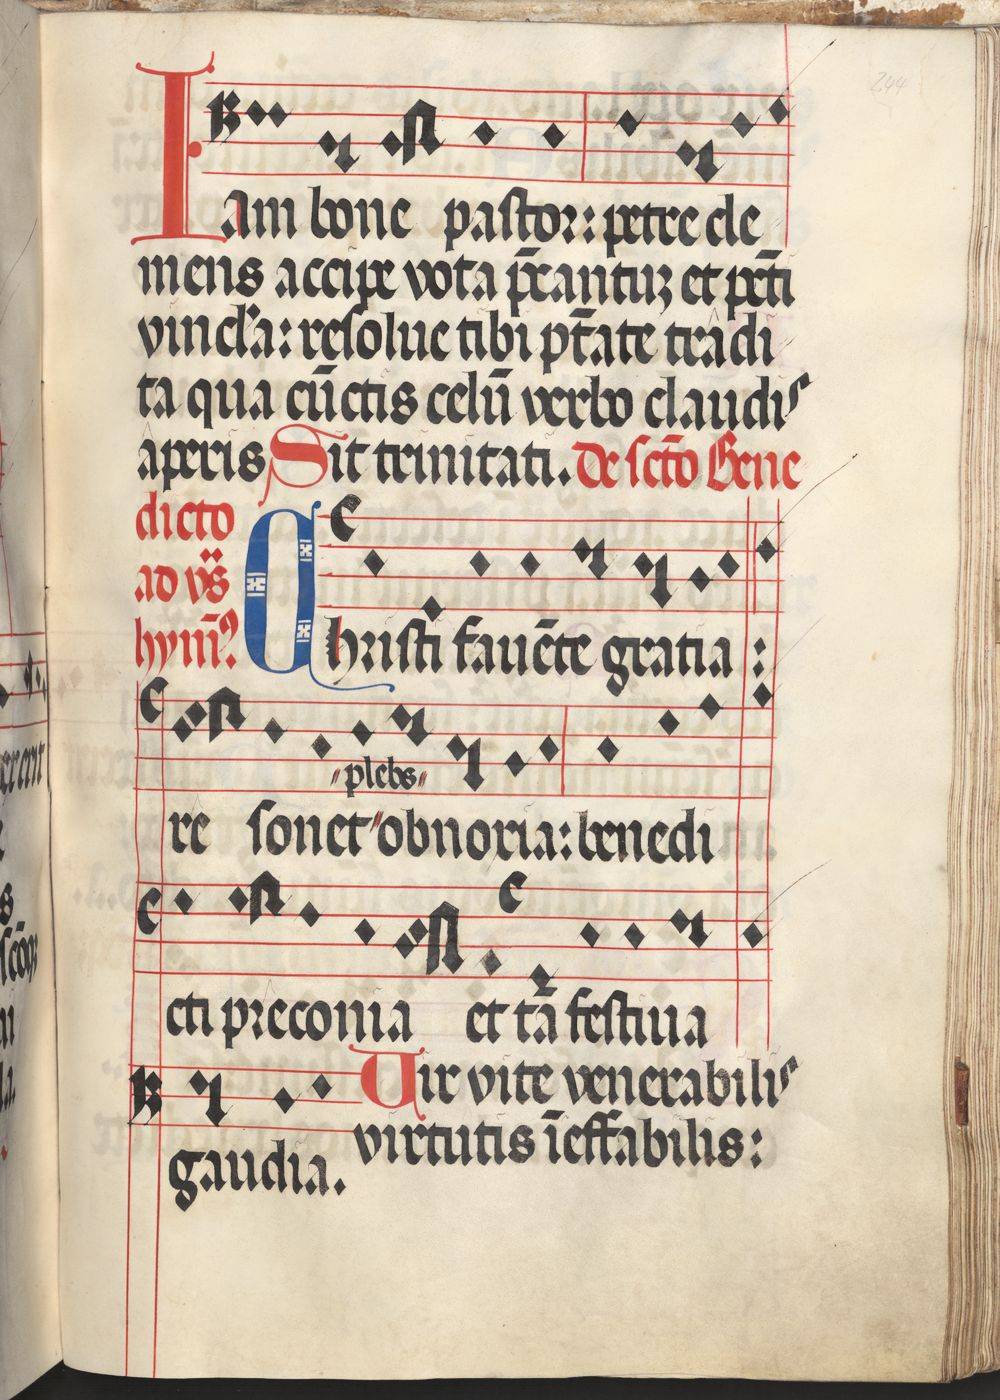 244
Iam bone pastor: petre cle
mens accipe vota p̄cantuꝫ et pc̄ti
vincla: resolue tibi pt̄ate tradi
ta qua cūctis celū verbo claudis
aperis Sit trinitati. De sct̄o Bene
dicto
ad vs̈
hym̄ꝰ.
Christi fauēte gratia :
"plebs"
re sonet "obnoxia: benedi
cti preconia et tā festiua
Uir vite venerabilis
virtutis īeffabilis:
gaudia.